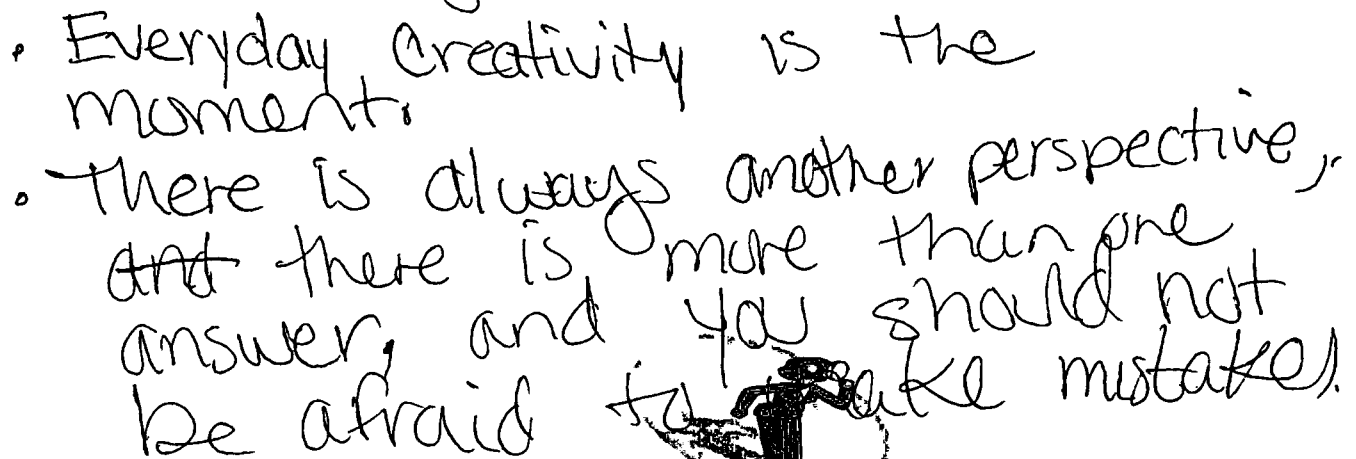 • Everyday creativity is the
moment.
• There is always another perspective,
and there is more than one
answer, and you should not
be afraid to make mistakes.